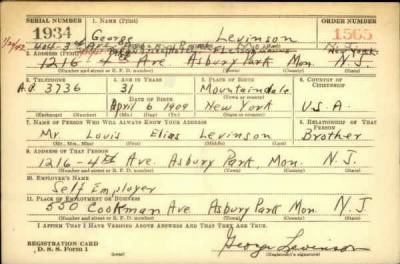 SERIAL NUMBER 1. NAME (Print) ORDER NUMBER
1934 George Levinson 1565
(First) (Middle) (Last)
2. ADDRESS (Print) New York
1216 4th Ave Asbury Park Mon. N.J.
(Number and street or R. F. D. number) (Town) (County) (State)
3. TELEPHONE 4. AGE IN YEARS 5. PLACE OF BIRTH 6. COUNTRY OF CITIZENSHIP
A.P. 3736 31 Mountaindale
DATE OF BIRTH (Town or county)
April 6 1909 New York U.S.A.
(Exchange) (Number) (Mo.) (Day) (Yr.) (State or country)
7. NAME OF PERSON WHO WILL ALWAYS KNOW YOUR ADDRESS 8. RELATIONSHIP OF THAT PERSON
Mr. Louis Elias Levinson Brother
(Mr., Mrs., Miss) (First) (Middle) (Last)
9. ADDRESS OF THAT PERSON
1216-4th Ave. Asbury Park, Mon. N.J.
(Number and street or R. F. D. number) (Town) (County) (State)
10. EMPLOYER'S NAME
Self Employer
11. PLACE OF EMPLOYMENT OR BUSINESS
550 Cookman Ave Asbury Park Mon. N.J.
(Number and street or R. F. D. number) (Town) (County) (State)
I AFFIRM THAT I HAVE VERIFIED ABOVE ANSWERS AND THAT THEY ARE TRUE.
REGISTRATION CARD
D. S. S. Form 1
George Levinson
(Registrant's signature)